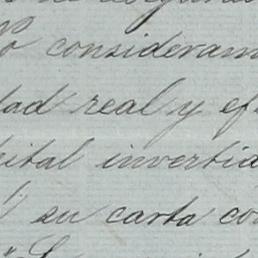 consideram
dad real y ef
pital invertid
su carta co